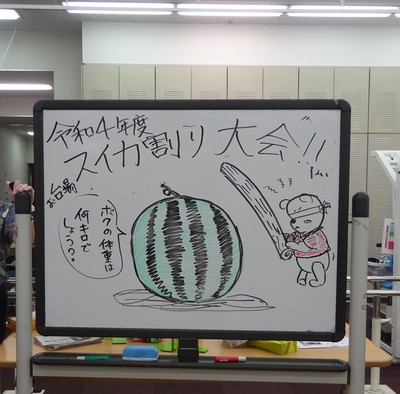 令和4年度
スイカ割り大会!!
お台場
ボクの体重は
何キロで
しょう?